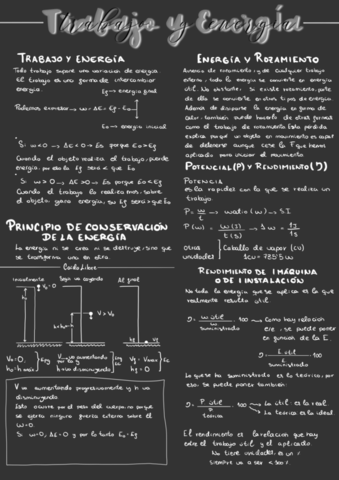 Trabajo y Energía
TRABAJO Y ENERGÍA
Todo trabajo supone una variación de energía.
El trabajo es una forma de intercambiar
energía.
Ef → energía final
Podemos extraer → W = ΔE = Ef - Eo
Eo → energía inicial
Si W < 0 → ΔE < 0 → Es porque Eo > Ef
Cuando el objeto realiza el trabajo, pierde
energía, por eso la Ef será < que Eo
Si W > 0 → ΔE > 0 → Es porque Eo < Ef
Cuando el trabajo lo realizamos sobre
el objeto, gana energía, su Ef será > que Eo
PRINCIPIO DE CONSERVACIÓN
DE LA ENERGÍA
La energía ni se crea ni se destruye, sino que
se transforma una en otra
Caída Libre
Inicialmente
Según va cayendo
Al final
V > Vo
h < ho
Vo = 0
ho = h máx
V → va aumentando
h → va disminuyendo
Vf = Vmáx
hf = 0
V va aumentando progresivamente y h va
disminuyendo
Esto ocurre por el peso del cuerpo, no porque
se ejerza ninguna fuerza externa sobre él
W = 0
Si W = 0, ΔE = 0 y por lo tanto Eo = Ef
ENERGÍA Y ROZAMIENTO
Ausencia de rozamiento, y de cualquier trabajo
externo, toda la energía se convierte en energía
útil. No obstante, si existe rozamiento, parte
de ella se convierte en otros tipos de energía.
Además de disiparse la energía en forma de
calor, también puede hacerlo de otras formas
como el trabajo de rozamiento. Esta pérdida
explica porque un objeto en movimiento es capaz
de detenerse aunque cese la F que hemos
aplicado para iniciar el movimiento
POTENCIAL (P) Y RENDIMIENTO (η)
POTENCIA
es la rapidez con la que se realiza un
trabajo
P = W/t → watio (W) → S.I
P (W) = W (J) / t (s) → 1 W = 1J/1s
otras
unidades
Caballo de vapor (CV)
1CV = 735'5 W
RENDIMIENTO DE 1 MÁQUINA
O DE 1 INSTALACIÓN
No toda la energía que se aplica es la que
realmente resulta útil
η = W útil / W suministrado · 100 → Como hay relación
entre, se puede poner
en función de la E.
η = E útil / E suministrada · 100
Lo que se ha suministrado es lo teórico, por
eso, se puede poner también:
η = P útil / P teórica · 100 → La útil es la real
La teórica es la ideal
El rendimiento es la relación que hay
entre el trabajo útil y el aplicado
No tiene unidades, es un %
siempre va a ser < 100%